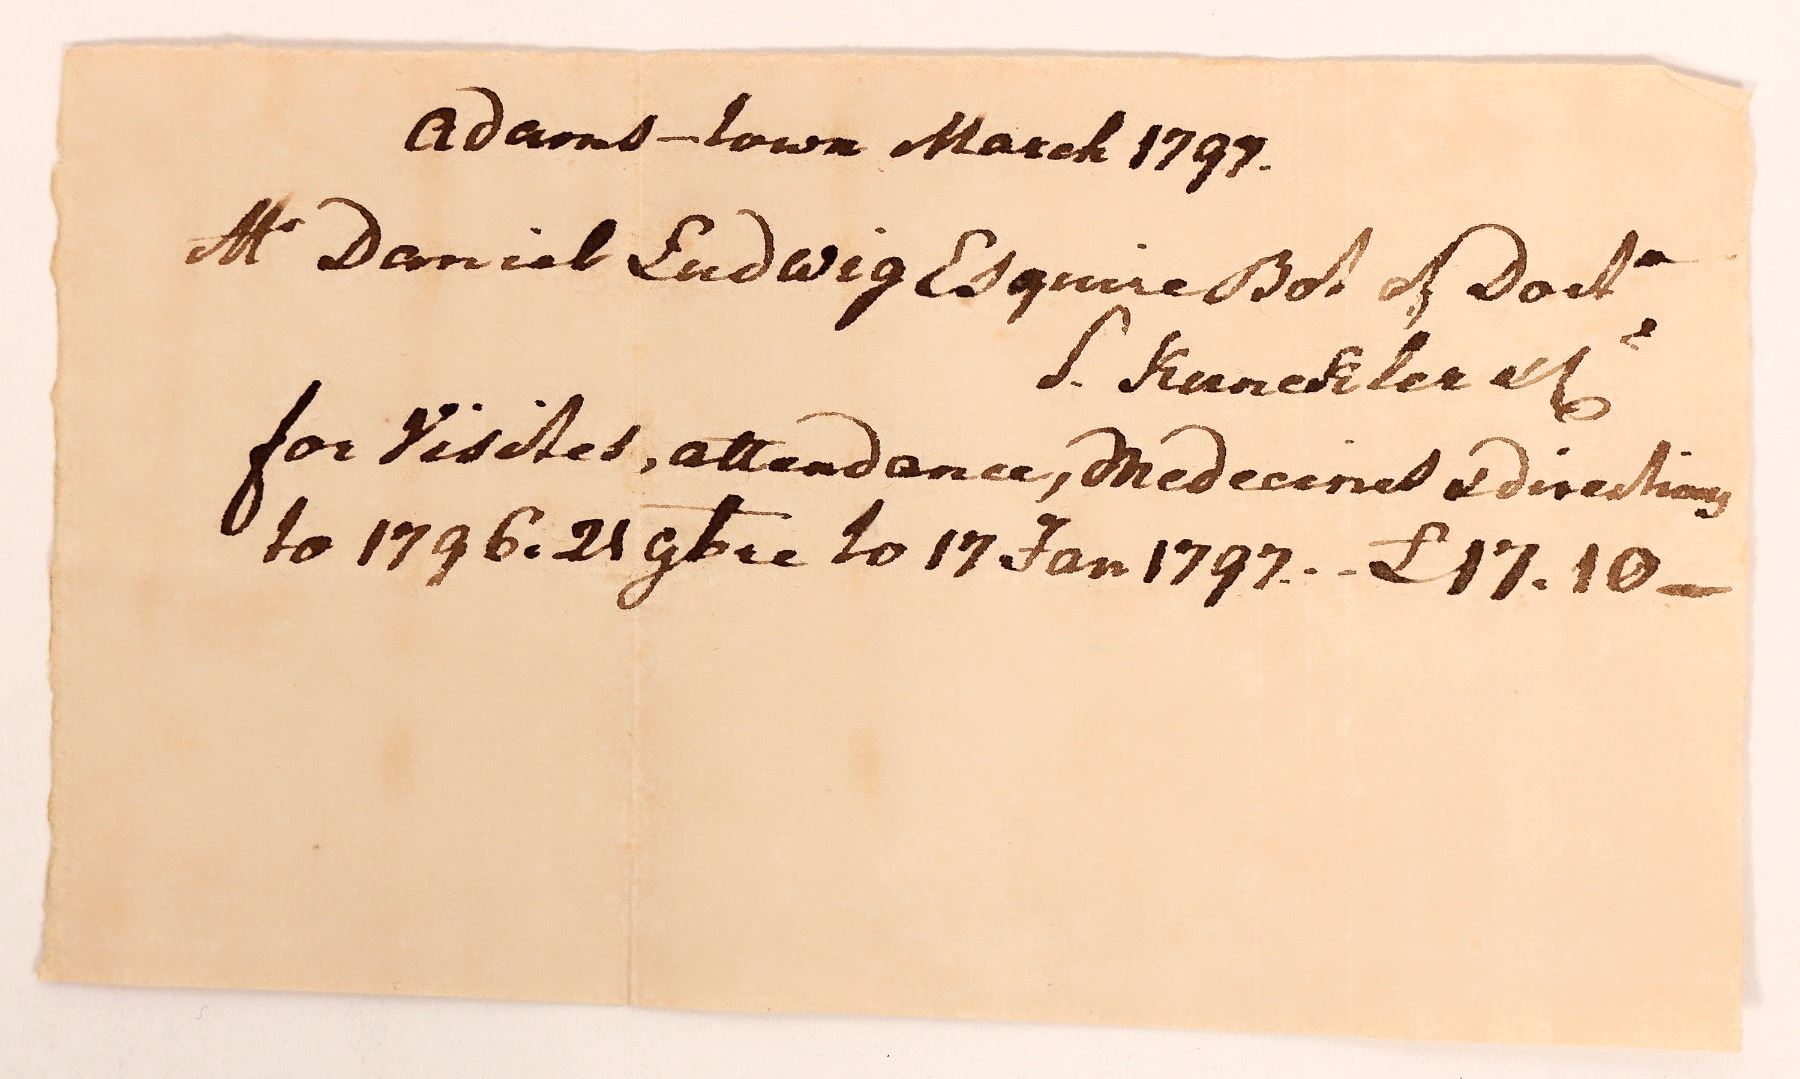 Adams-town March 1797.
Mr Daniel Ludwig Esquire Bot of Doctr
S. Kunckler
for Visites, attendance, Medecines & directions
to 1796. 21 9bre to 17 Jan 1797. . - £17. 10 —